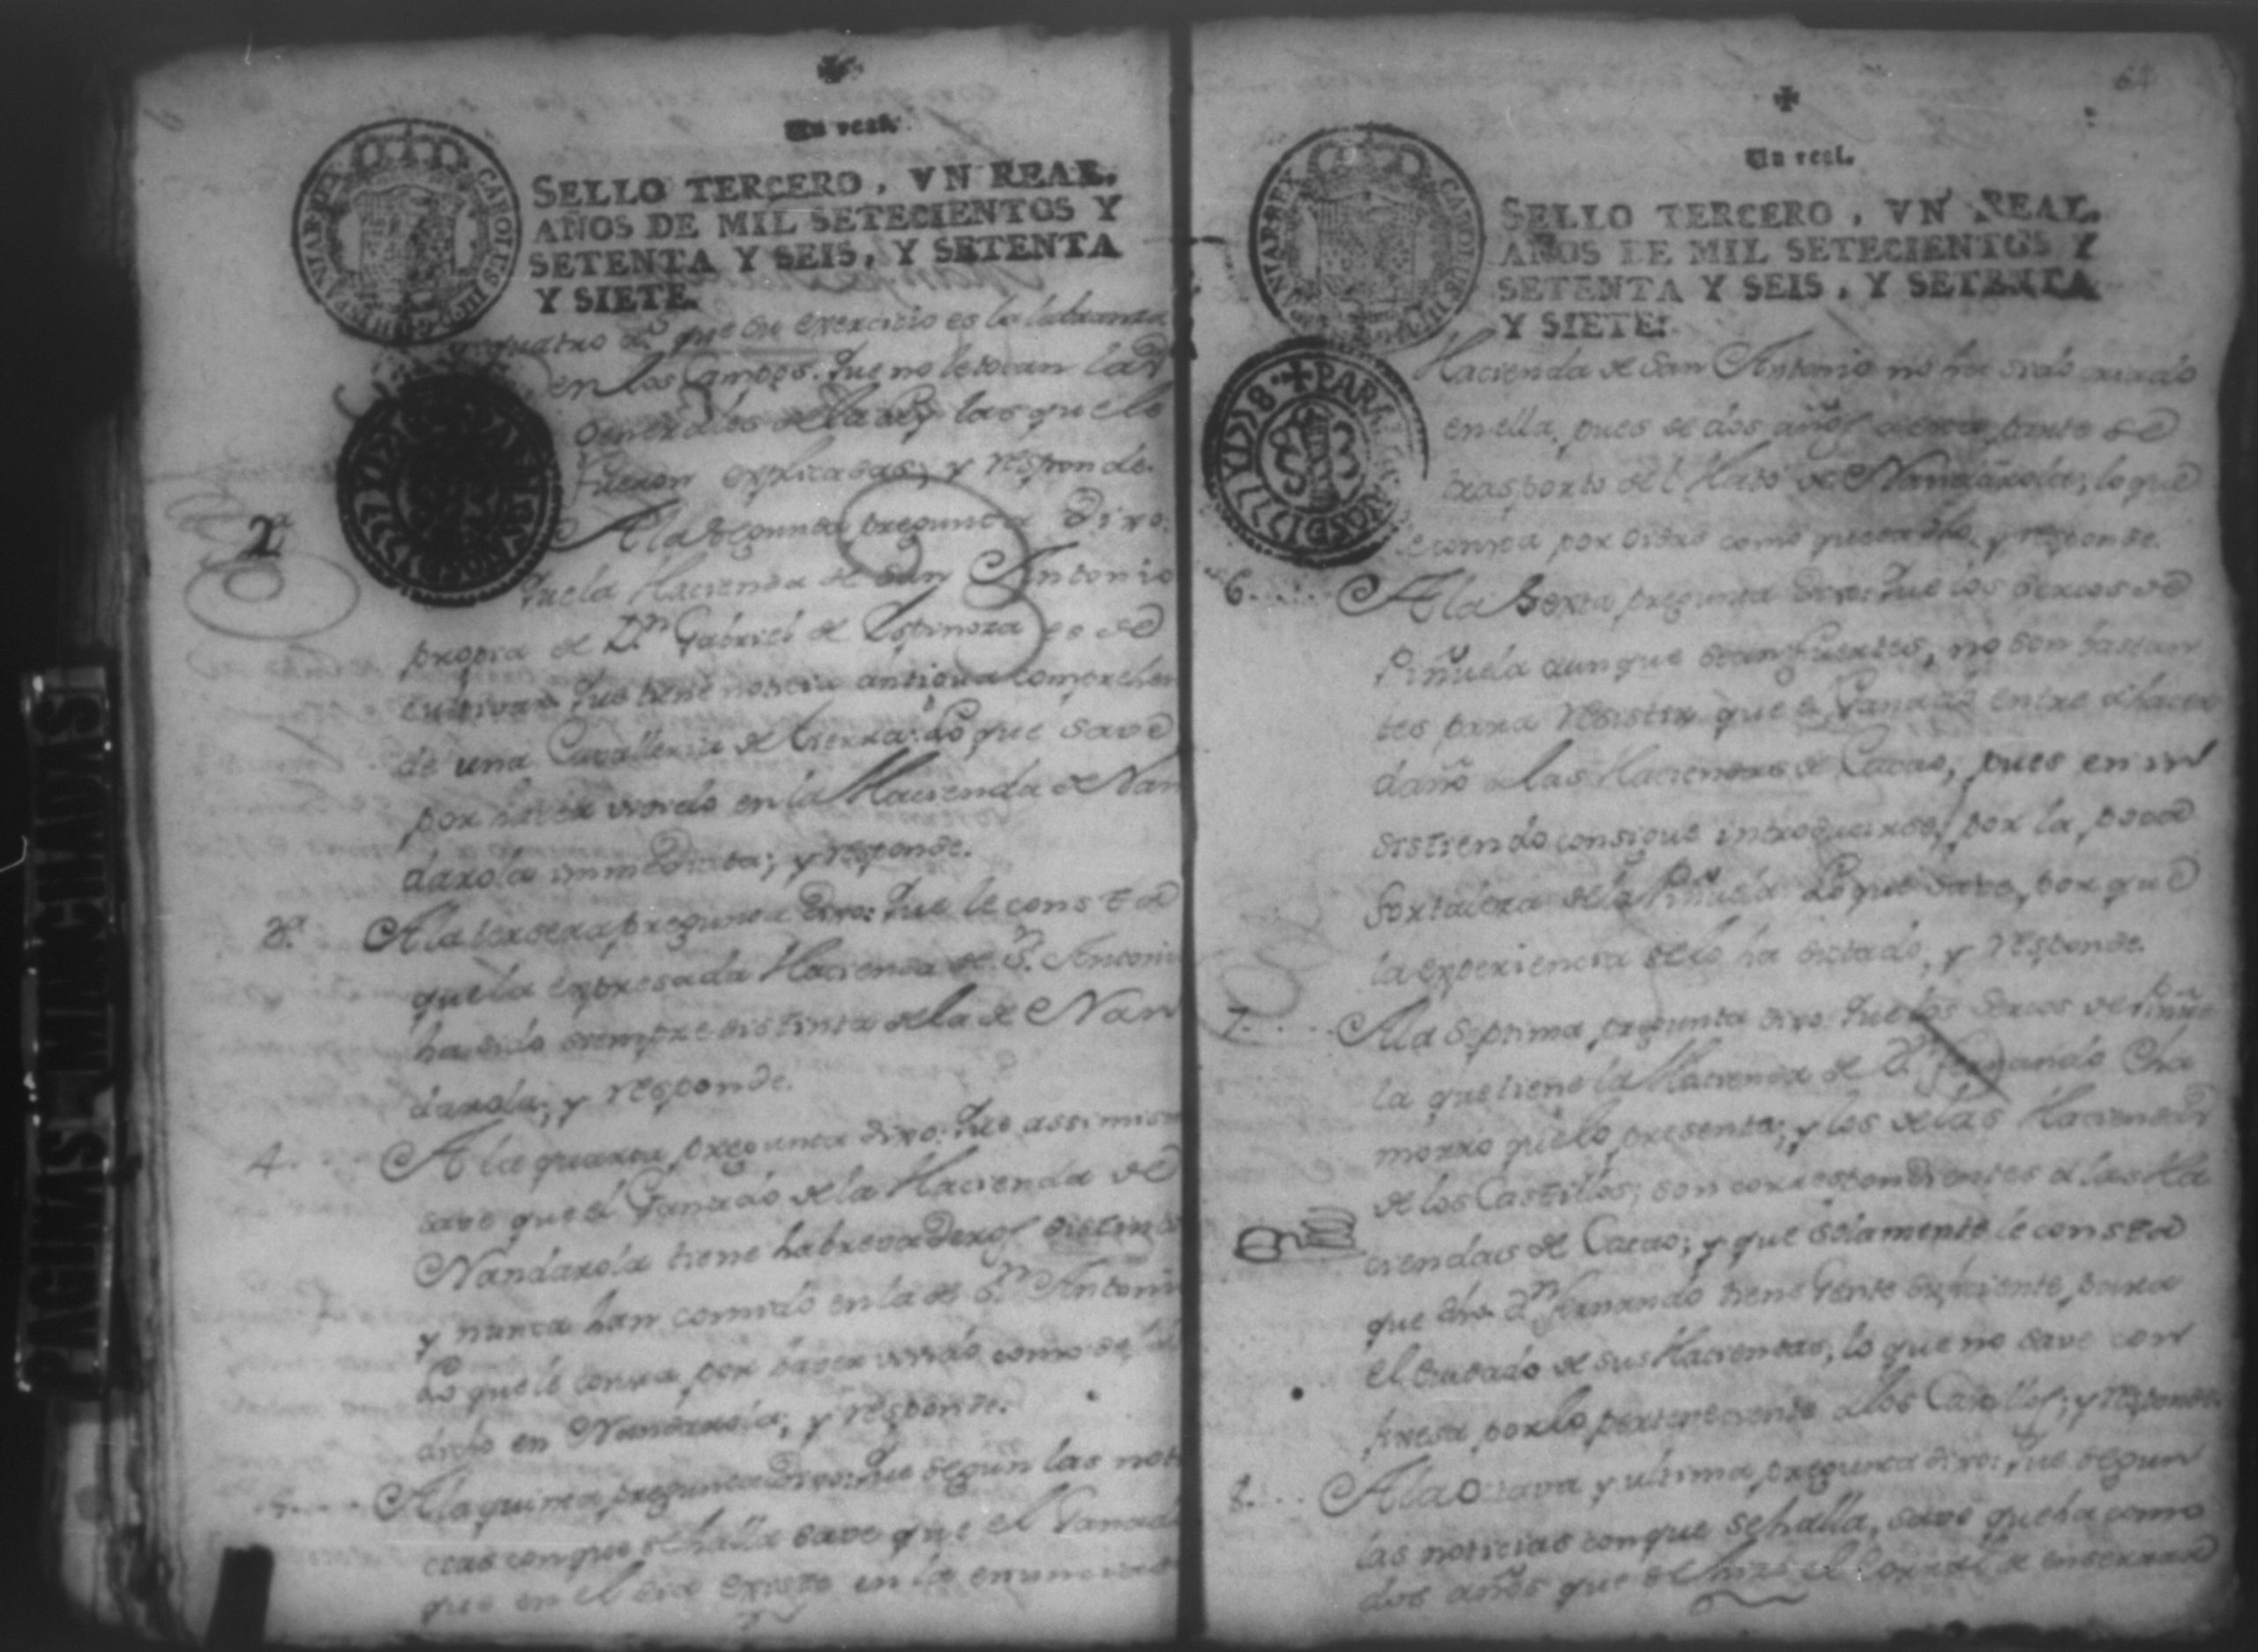 Un real.
SELLO TERCERO, VN REAL.
AÑOS DE MIL SETECIENTOS Y
SETENTA Y SEIS, Y SETENTA
Y SIETE.
quatro as. que su exercicio es la labranza
en los Campos. Que no le tocan las
Generales de la Ley las que le
fueron explicadas; y responde.
2a
A la segunda pregunta Dixo:
Que la Hacienda de San Antonio
propia de Dn. Gabriel de Espinoza es de
Que tiene noticia antigua comprehen
de una Cavalleria de tierra. Lo que save
por haver vivido en la Hacienda de Nan
darola immediata; y responde.
3a. A la tercera pregunta Dixo: Que le consta
que la expresada Hacienda de Sn. Antonio
ha sido siempre distinta de la de Nan
darola; y responde.
4. A la quarta pregunta dixo: Que assimism
save que el Ganado de la Hacienda de
Nandarola tiene habrevaderos distintos
y nunca han comido en la de Sn. Antonio
Lo que le consta por haver vivido como
dicho en Nandarola; y responde.
A la quinta pregunta Dixo: Que segun las noti
cias con que se halla save que el Ganado
que en el dia existe en la enunciada
64
Un real.
SELLO TERCERO, VN REAL.
AÑOS DE MIL SETECIENTOS Y
SETENTA Y SEIS, Y SETENTA
Y SIETE.
PARA LOS AÑOS D 1777 Y D 78
Hacienda de San Antonio no ha sido criado
en ella, pues de dos años a esta parte se
trasporto del Hato de Nandarola; lo que
por como y responde.
6. A la Sexta pregunta Dixo: Que los cercos de
Piñuela aunque sean fuertes, no son bastan
tes para resistir que el Ganado entre a hacer
daño a las Haciendas de Cacao, pues en in
sistiendo consigue introducirse, por la poca
fortaleza de la Piñuela. Lo que save, por que
la experiencia se lo ha dictado, y responde.
7. A la Septima pregunta dixo: Que los cercos de Piñue
la que tiene la Hacienda de Dn. Fernando Cha
morro que lo presenta; y los de las Haciendas
de los Castillos; son correspondientes a las Ha
ciendas de Cacao; y que solamente le consta
que dho. Dn. Fernando tiene Gente suficiente para
el cuidado de sus Haciendas; lo que no save con
fixeza por lo perteneciente a los Castillos; y responde.
8. A la Octava y ultima pregunta dixo: Que segun
las noticias con que se halla, save que ha como
dos años que se hizo el Corral de encerrar